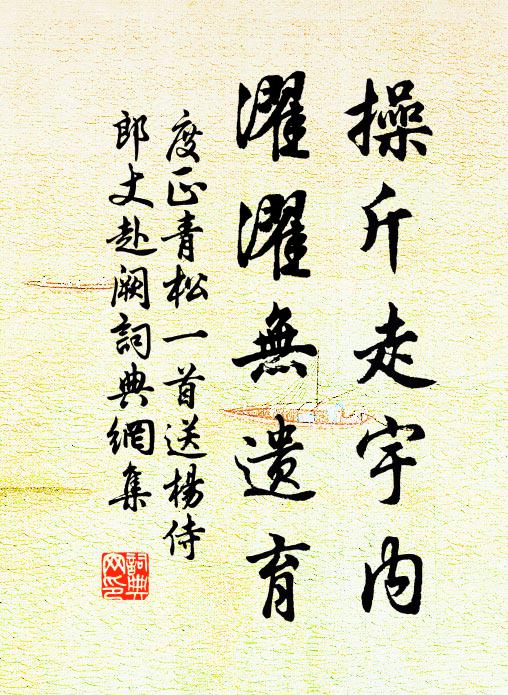 操斤走宇内
濯濯無遺育
度正青松一首送楊侍
郎丈赴闕詞典網集
詞典
网印